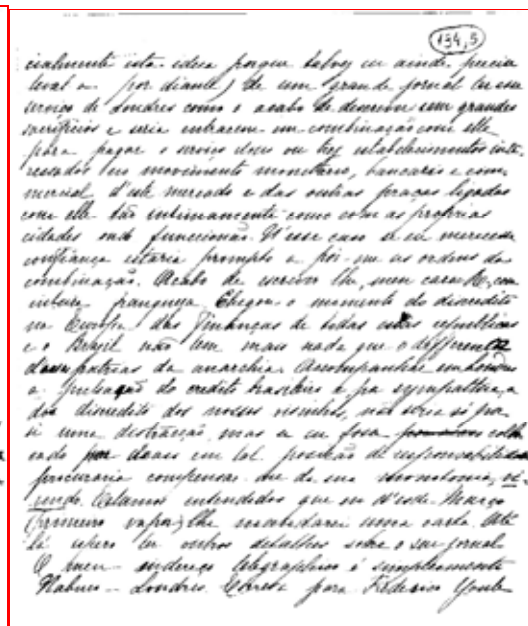 134,5
cialmente esta idéia porque talvez eu ainda
leval-a por diante) de um grande jornal ter esse
serviço de Londres como o acabo de descrever sem grandes
sacrificios e seria entrarem em combinação com elle
para pagar o serviço dous ou trez estabelecimentos inte-
ressados no movimento monetario, bancario e com-
mercial d'este mercado e das outras praças ligadas
com elle tão intimamente como com as proprias
cidades onde funccionão. N'esse caso se eu merecesse
confiança estaria prompto a pôr-me as ordens da
combinação. Acabo de escrever lhe, meu caro, com
inteira franqueza. Chegou o momento do discredito
na Europa das Finanças de todas estas republicas
e o Brazil não tem mais nada que o differente
d'essas patrias da anarchia. Acompanhar
a pulsação do credito brasileiro e por sympathia, a
dos discredito dos nossos visinhos, não seria só pa
si uma distracção, mas se eu fosse collo
cado por acaso em tal posição de responsabilidade
procuraria compensar-me de sua monotonia,
Estamos entendidos que em d'esde Março
(primeiro vapor) lhe mandarei uma carta. Até
lá espero ter outros detalhes sobre o seu jornal
O meu endereço telegraphico é simplesmente
Nabuco - Londres. Correta para Frederico Youle